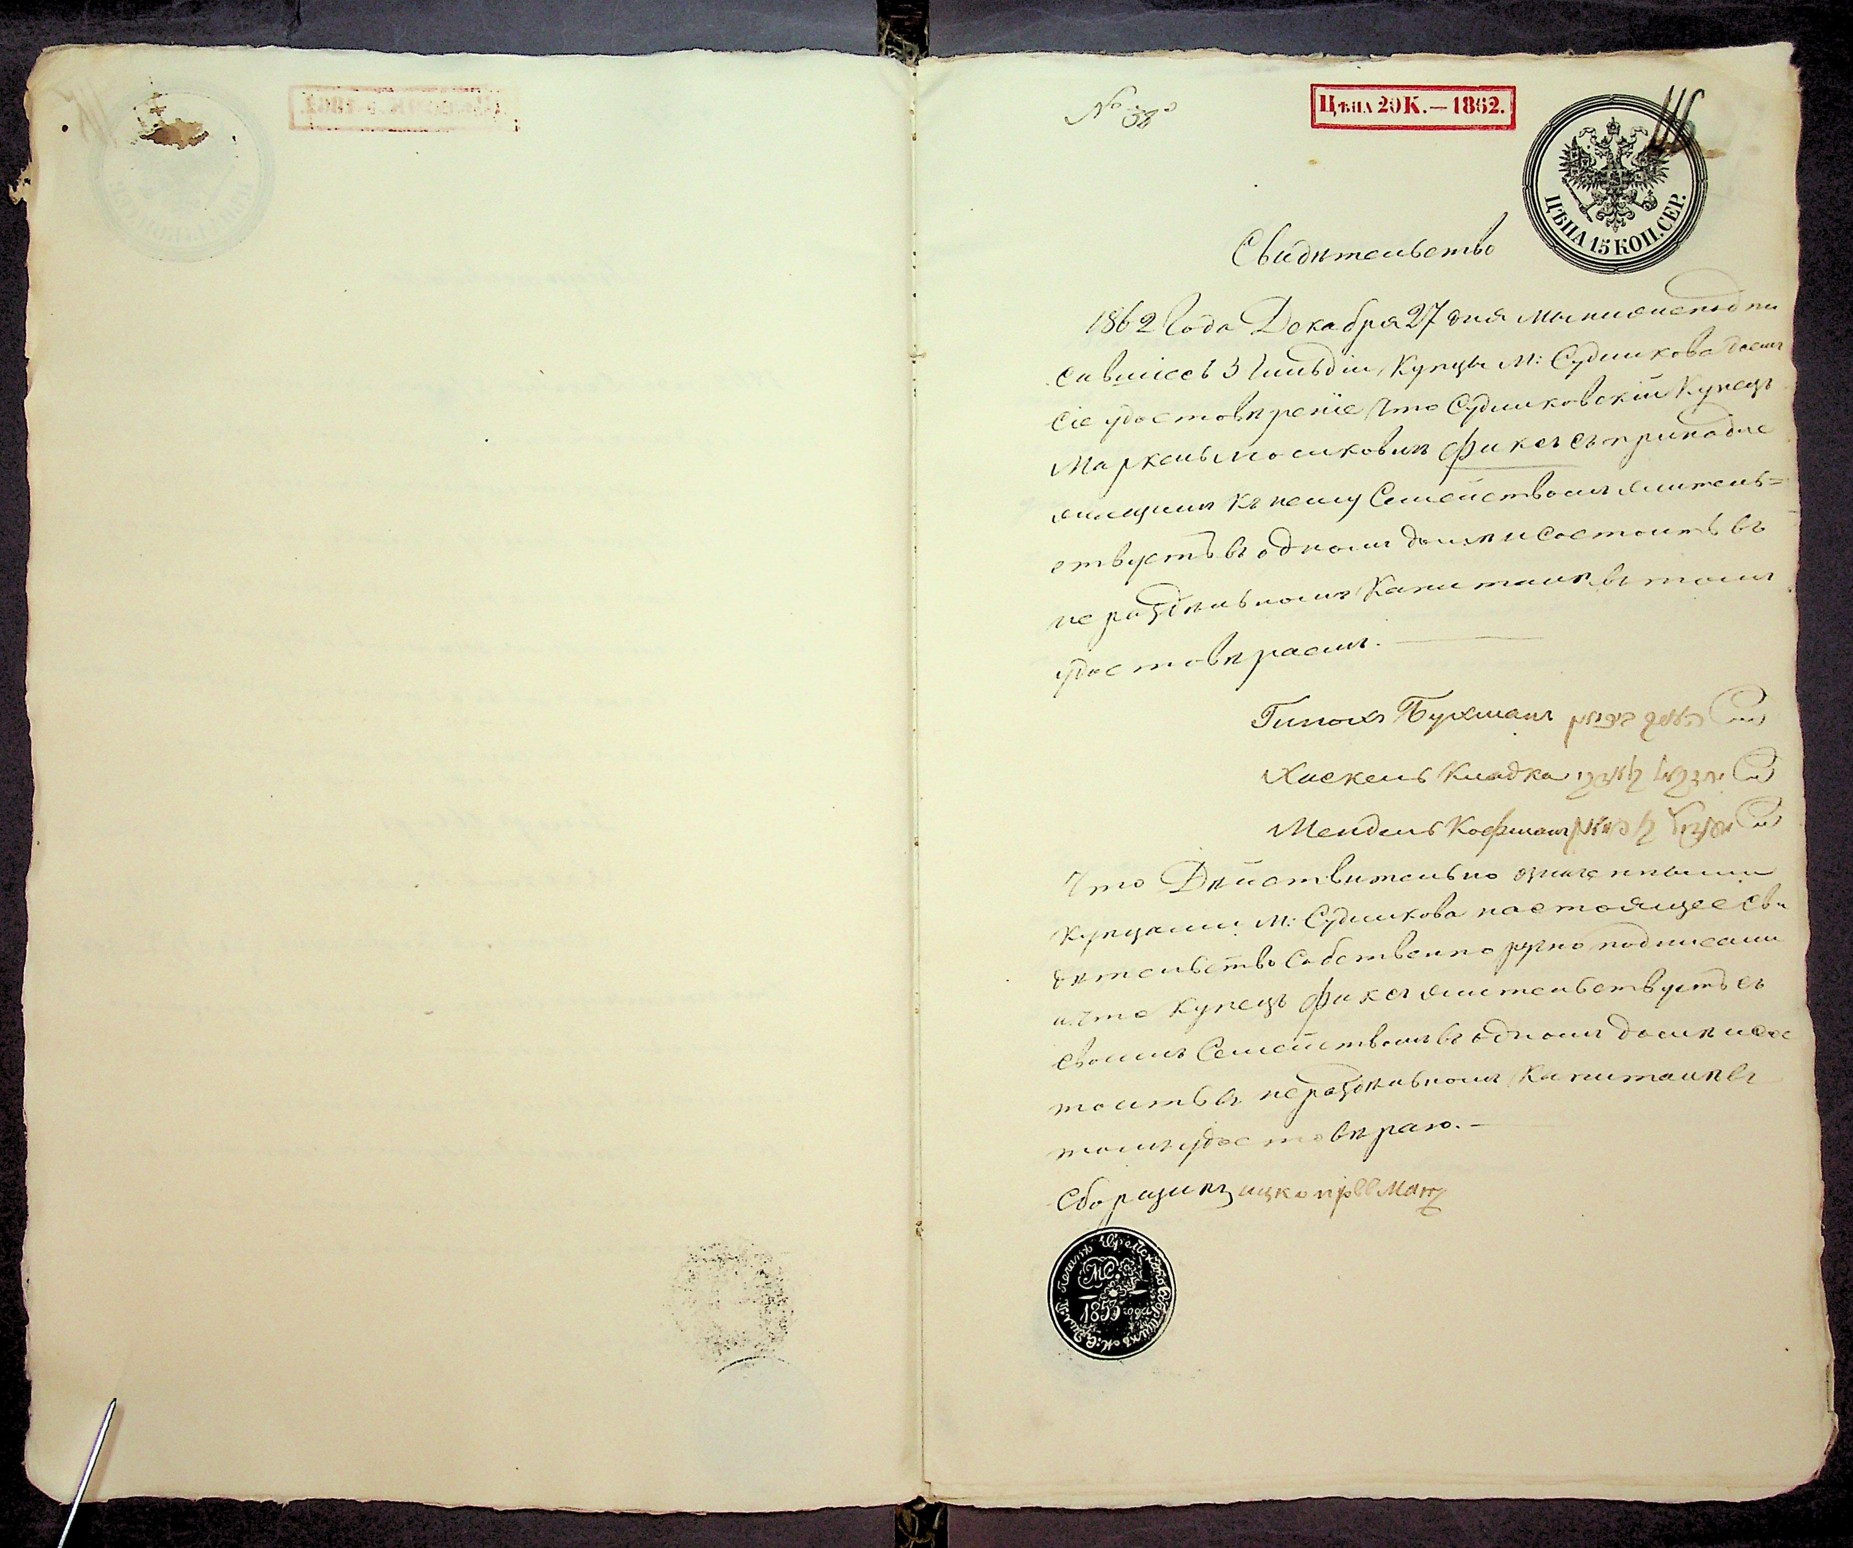 № 58
Цѣна 20 К. — 1862.
ЦѢНА 15 КОП. СЕР.
Свидѣтельство
1862 Года Декабря 27 дня мы нижеподпи
савшіесь 3 Гильдіи Купцы м: Судилкова даемъ
сіе удостовѣреніе что Судилковскій Купецъ
Маркель Мосиковичъ Фиксъ съ принадле
жащимъ къ нему Семействомъ житель=
ствуетъ въ одномъ домѣ и состоитъ въ
нераздѣльномъ Капиталѣ въ томъ
удостовѣраемъ.
Гинохъ Бухманъ
Хаскель Кладка
Мендель Кофманъ
Что Дѣйствительно означенными
Купцами м: Судилкова настоящее Сви
дѣтельство Собственноручно подписали
и что Купецъ Фиксъ жительствуетъ съ
своимъ Семействомъ въ одномъ домѣ и сос
тоитъ въ нераздѣльномъ Капиталѣ въ
томъ удостовѣраю. —
Сборщикъ ицко
Печать Еврейскаго Сборщика м: Судил
МС.
1853 года